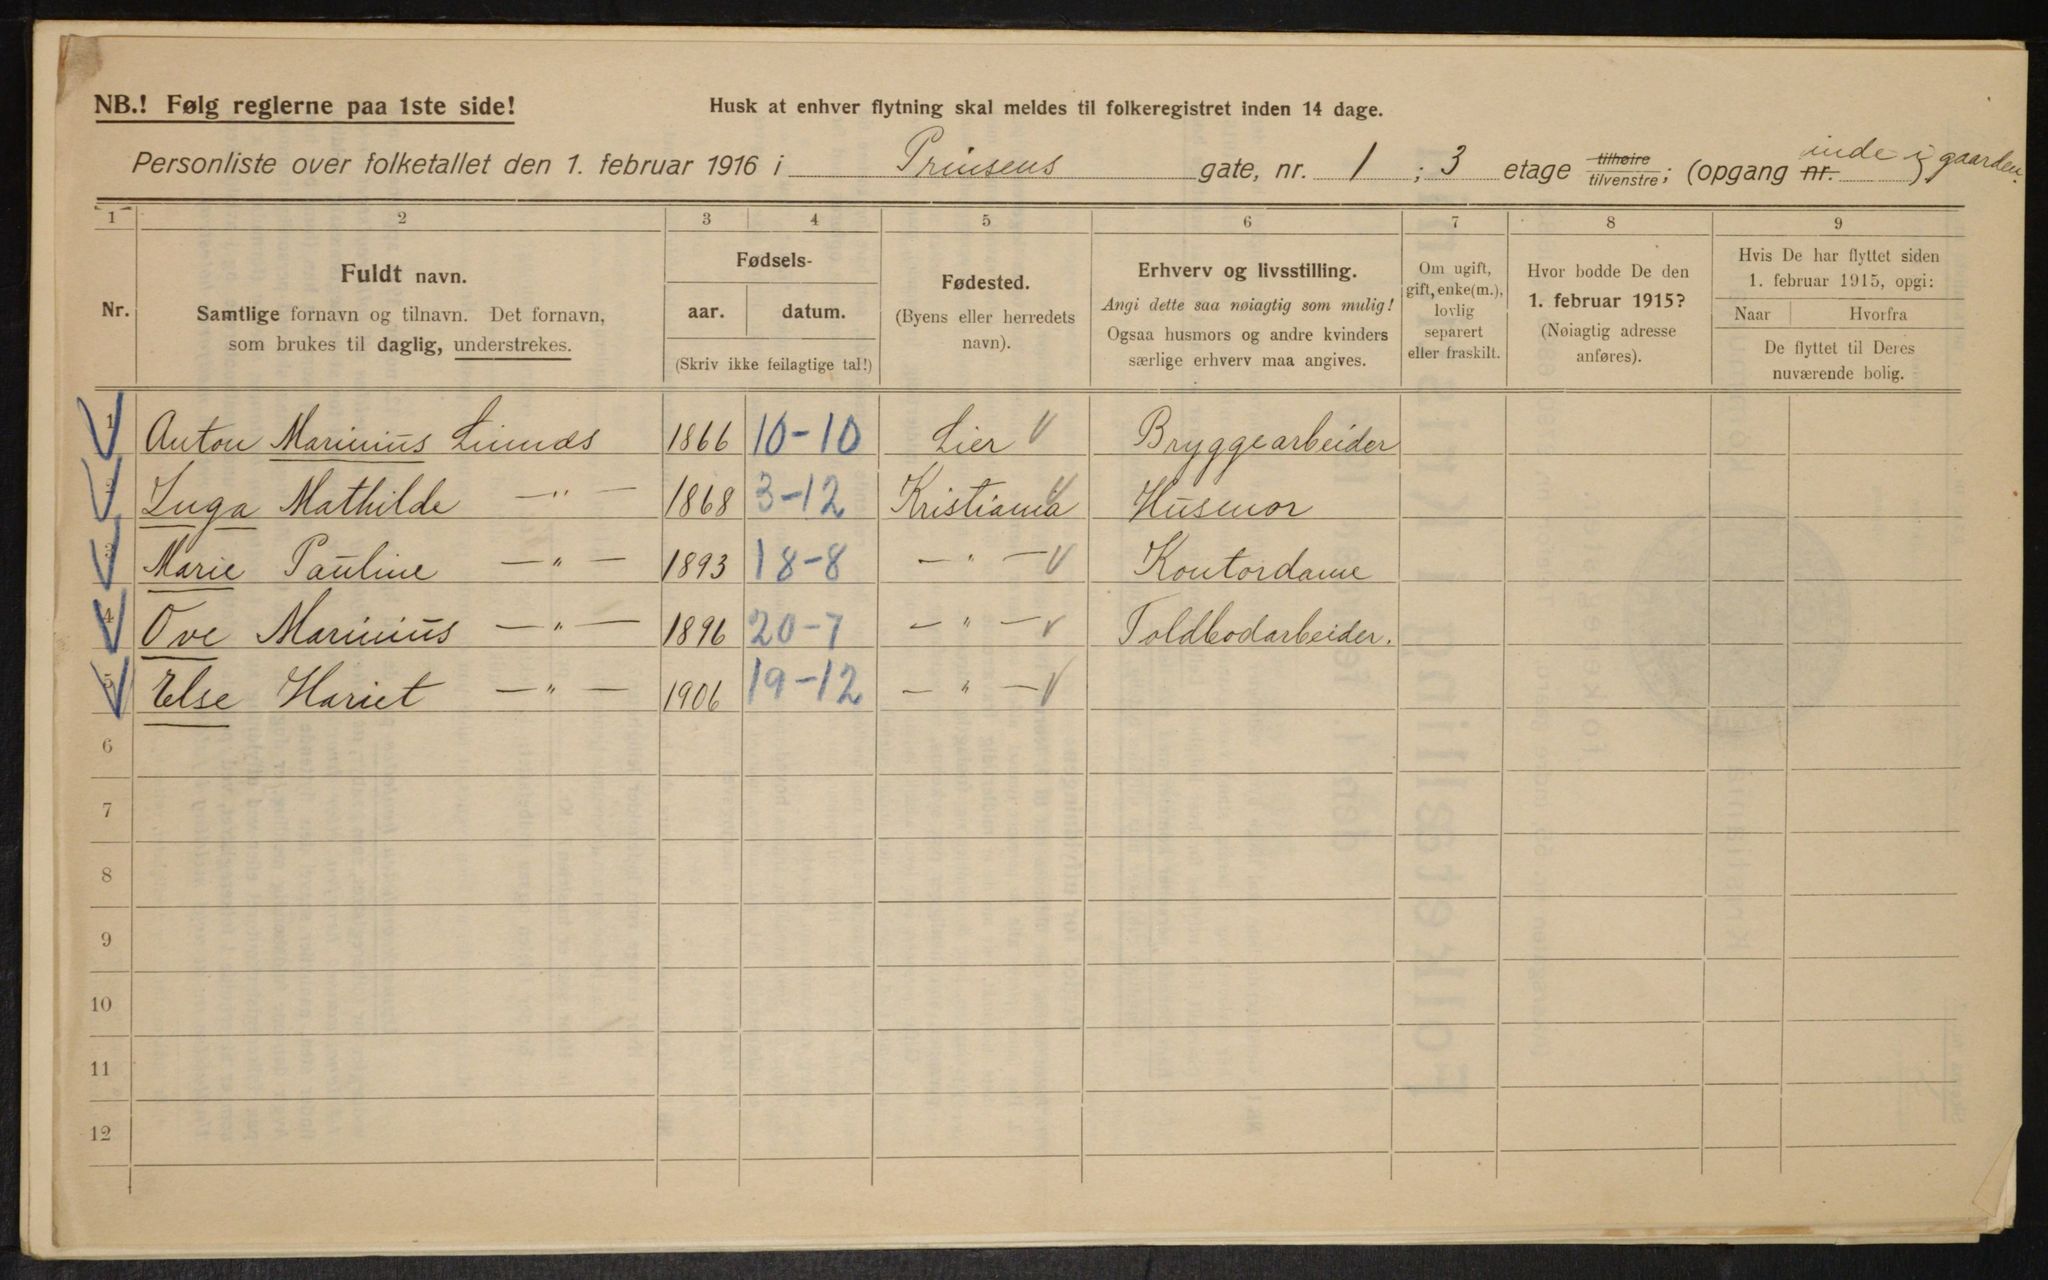 NB.! Følg reglerne paa 1ste side!
Husk at enhver flytning skal meldes til folkeregistret inden 14 dage.
Personliste over folketallet den 1. februar 1916 i Prinsens gate, nr. 1 ; 3 etage tilhøire tilvenstre; (opgang nr. inde i gaarden.)
1 2 3 4 5 6 7 8 9
Nr.
Fuldt navn.
Samtlige fornavn og tilnavn. Det fornavn,
som brukes til daglig, understrekes.
Fødsels-
aar. datum.
(Skriv ikke feilagtige tal!)
Fødested.
(Byens eller herredets
navn).
Erhverv og livsstilling.
Angi dette saa nøiagtig som mulig!
Ogsaa husmors og andre kvinders
særlige erhverv maa angives.
Om ugift,
gift, enke(m.),
lovlig
separert
eller fraskilt.
Hvor bodde De den
1. februar 1915?
(Nøiagtig adresse
anføres).
Hvis De har flyttet siden
1. februar 1915, opgi:
Naar Hvorfra
De flyttet til Deres
nuværende bolig.
1 Anton Marinius 1866 10-10 Lier Bryggearbeider
2 Inga Mathilde —"— 1868 3-12 Kristiania Husmor
3 Marie Pauline —"— 1893 18-8 —"— Kontordame
4 Ove Marinius —"— 1896 20-7 —"— Toldbodarbeider.
5 Else Hariet —"— 1906 19-12 —"—
6
7
8
9
10
11
12